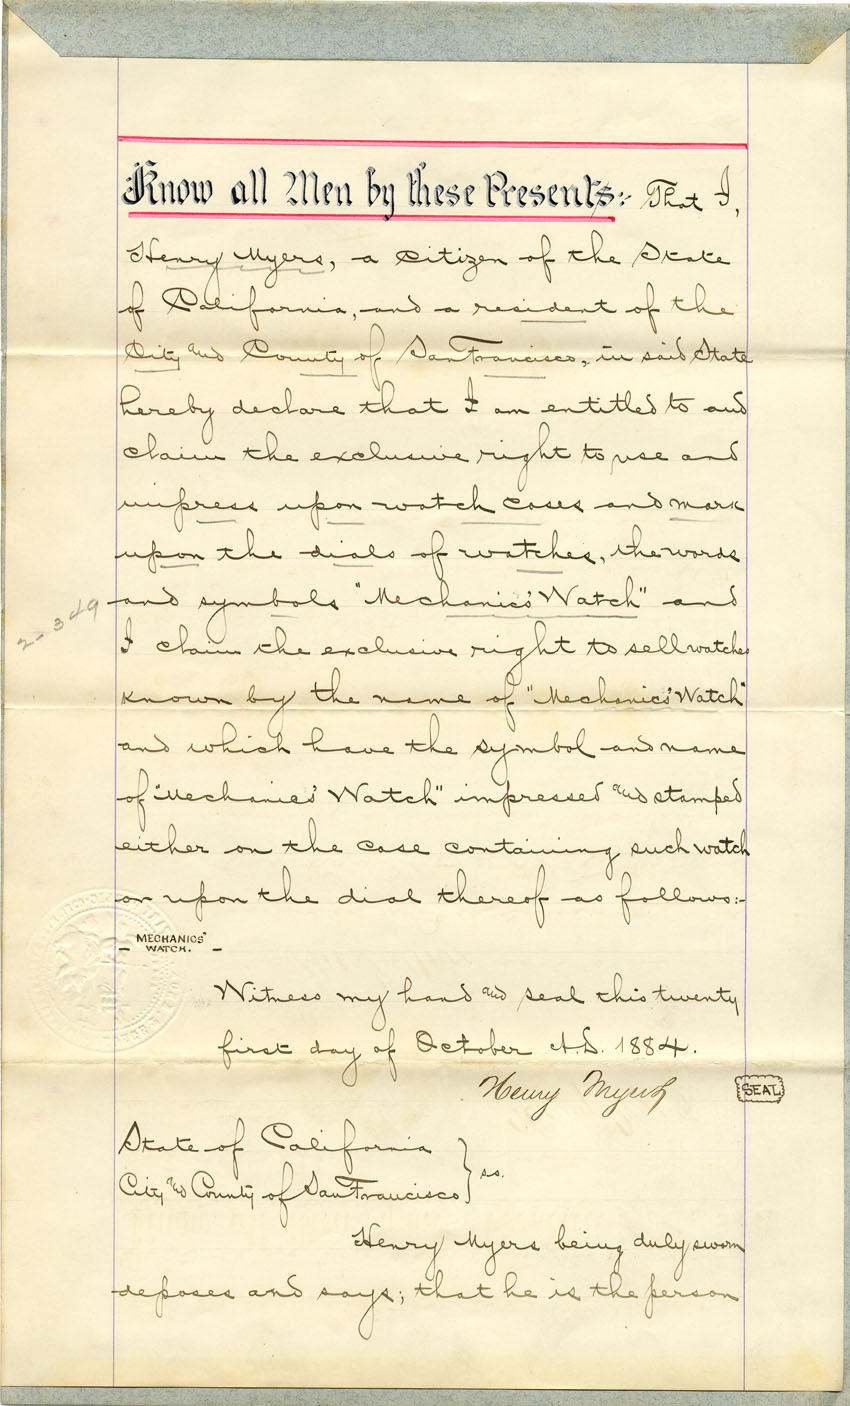 Know all Men by these Presents:- That I,
Henry Myers, a citizen of the State
of California, and a resident of the
City and County of San Francisco, in said State
hereby declare that I am entitled to and
claim the exclusive right to use and
impress upon watch cases and mark
upon the dials of watches, the words
and symbols "Mechanics' Watch" and
2-349
I claim the exclusive right to sell watches
known by the name of "Mechanics' Watch"
and which have the symbol and name
of "Mechanics' Watch" impressed and stamped
either on the case containing such watch
or upon the dial thereof as follows:-
- MECHANICS'
WATCH. -
Witness my hand and seal this twenty
first day of October A.D. 1884.
Henry Myers
SEAL
State of California
City and County of San Francisco } ss.
Henry Myers being duly sworn
deposes and says; that he is the person